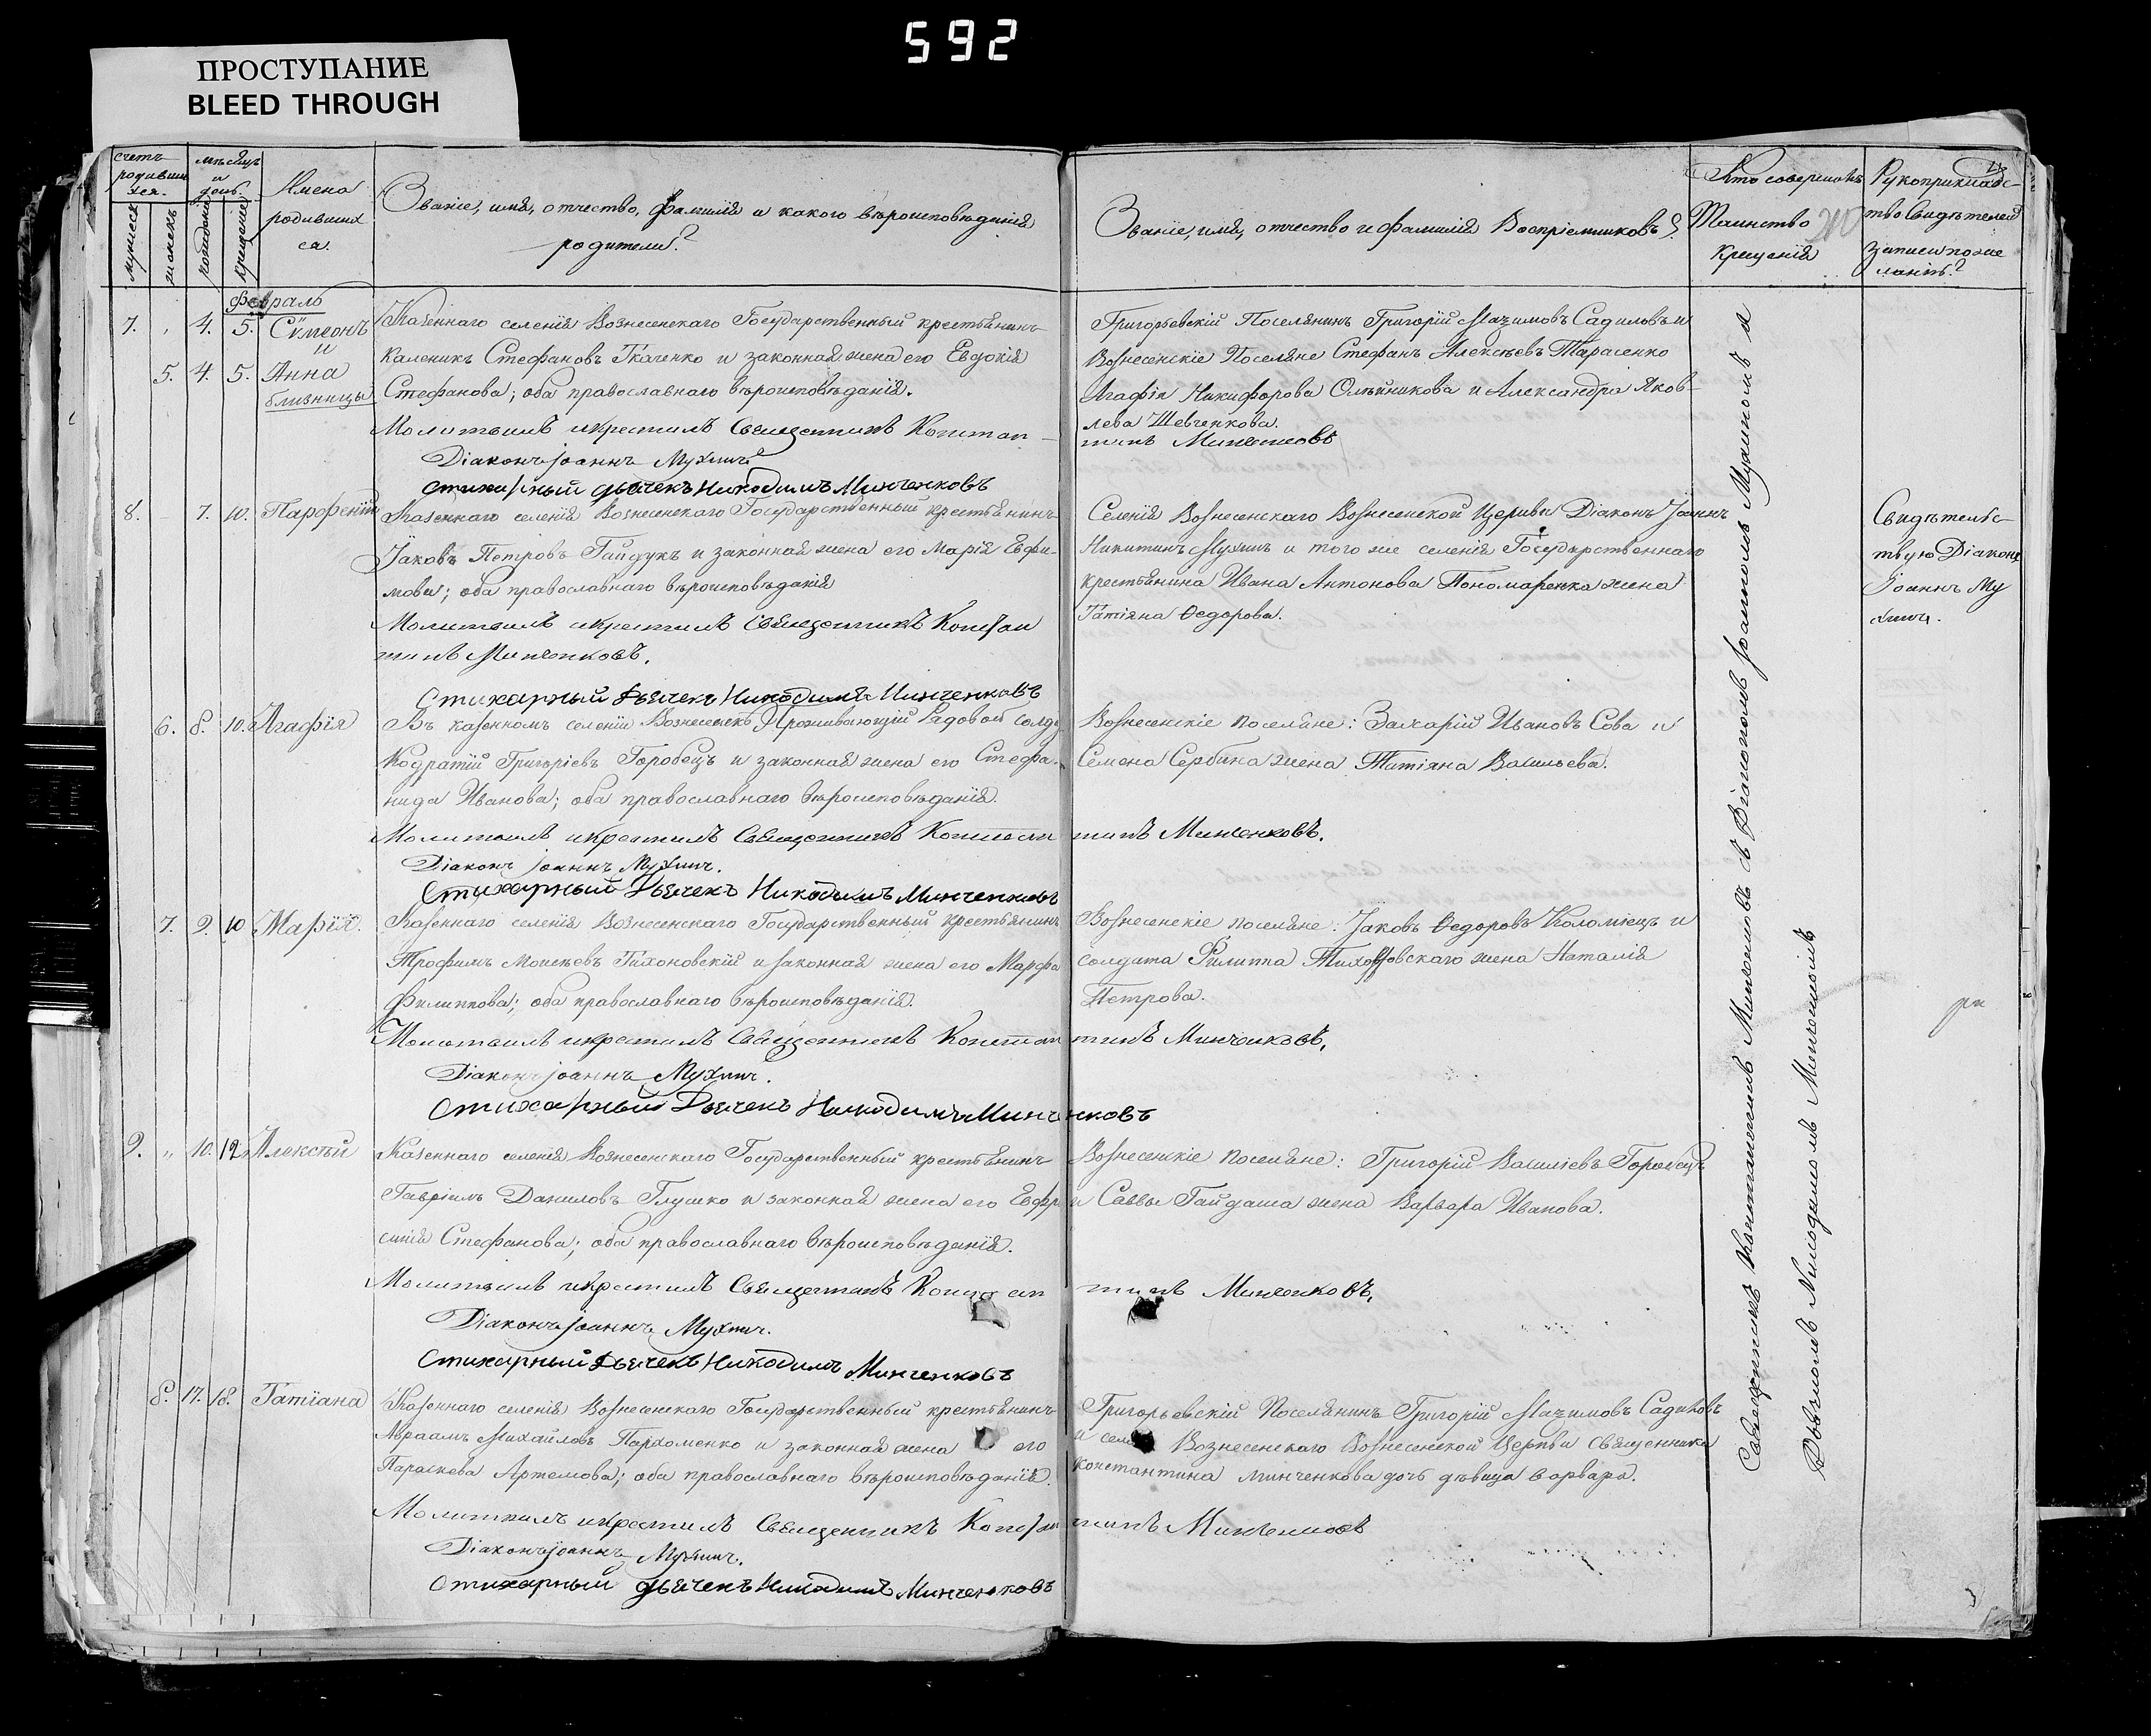 592
ПРОСТУПАНИЕ
BLEED THROUGH
счетъ родивших ся.
мѣсяцъ и день.
Имена родивших ся.
Званіе, имя, отчество, фамилія и какого вѣроисповѣданія
родители?
Званіе, имя, отчество и фамилія Воспріемниковъ?
Кто совершалъ
Таинство
крещенія
Рукоприкладс-
тво Свидѣтелей
записи по же
ланію?
мужеск
женскъ
рожденія
крещенія
февраль
7. 4. 5. Сѵмеонъ
и
5. 4. 5. Анна
близнецы
Казеннаго селенія Вознесенскаго Государственный крестьянинъ
Каленикъ Стефановъ Ткаченко и законная жена его Евдокія
Стефанова; оба православнаго вѣроисповѣданія.
Григорьевскій Поселянинъ Григорій Мазимовъ Садиловъ и
Вознесенскіе Поселяне Стефанъ Алексѣевъ Тарасенко
Агафія Никифорова Олѣйникова и Александра Яков-
лева Шевченкова.
Молитвилъ и крестилъ Священникъ Констан-
тинъ Минченковъ
Діаконъ Іоаннъ Мухинъ
Стихарный дьячекъ Никодимъ Минченковъ
8. 7. 10. Парфеній
Казеннаго селенія Вознесенскаго Государственный крестьянинъ
Іаковъ Петровъ Гайдукъ и законная жена его Марія Евфи-
мова; оба православнаго вѣроисповѣданія
Селенія Вознесенскаго Вознесенской Церкви Діаконъ Іоаннъ
Никитинъ Мухинъ и того же селенія Государственнаго
крестьянина Ивана Антонова Пономаренка жена
Татіяна Ѳедорова.
Свидѣтельс-
твую Діаконъ
Іоаннъ Му
хинъ.
Молитвилъ и крестилъ Священникъ Констан
тинъ Минченковъ.
Стихарный Дьячекъ Никодимъ Минченковъ
6. 8. 10. Агафія
Въ казенномъ селеніи Вознесенскѣ Проживающій Рядовой солда
Кодратій Григорієвъ Горобецъ и законная жена его Стефа-
нида Иванова; оба православнаго вѣроисповѣданія.
Вознесенскіе поселяне: Захарій Ивановъ Сова и
Семена Сербина жена Татіяна Васильева.
Молитвилъ и крестилъ Священникъ Констан тинъ Минченковъ.
Діаконъ Іоаннъ Мухинъ.
Стихарный Дьячекъ Никодимъ Минченковъ
7. 9. 10 Марія.
Казеннаго селенія Вознесенскаго Государственный крестьянинъ
Трофимъ Моисѣевъ Тихоновскій и законная жена его Марфа
Филиппова; оба православнаго вѣроисповѣданія.
Вознесенскіе поселяне: Іаковъ Ѳедоровъ Коломіецъ и
солдата Филиппа Тихоновскаго жена Наталія
Петрова.
Молитвилъ и крестилъ Священникъ Констан тинъ Минченковъ.
Діаконъ Іоаннъ Мухинъ.
Стихарный Дьячекъ Никодимъ Минченковъ
9. „ 10. 12. Алексѣй
Казеннаго селенія Вознесенскаго Государственный крестьянинъ
Гавріилъ Даниловъ Глушко и законная жена его Евфро
синія Стефанова; оба православнаго вѣроисповѣданія.
Вознесенскіе поселяне: Григорій Василіевъ Горобецъ
и Саввы Гайдаша жена Варвара Иванова.
Молитвилъ и крестилъ Священникъ Констан тинъ Минченковъ.
Діаконъ Іоаннъ Мухинъ.
Стихарный Дьячекъ Никодимъ Минченковъ
8. 17. 18. Татіана
Казеннаго селенія Вознесенскаго Государственный крестьянинъ
Авраамъ Михайловъ Пархоменко и законная жена его
Параскева Артемова; оба православнаго вѣроисповѣданія.
Григорьевскій Поселянинъ Григорій Мазимовъ Садиковъ
и Вознесенскаго Вознесенской Церкви Священника
Константина Минченкова дочь дѣвица Варвара.
Молитвилъ и крестилъ Священникъ Констан тинъ Минченковъ
Діаконъ Іоаннъ Мухинъ.
Стихарный дьячекъ Никодимъ Минченковъ
Священникъ Константинъ Минченковъ съ Діакономъ Іоанномъ Мухинымъ и
Дьячкомъ Никодимомъ Минченковымъ